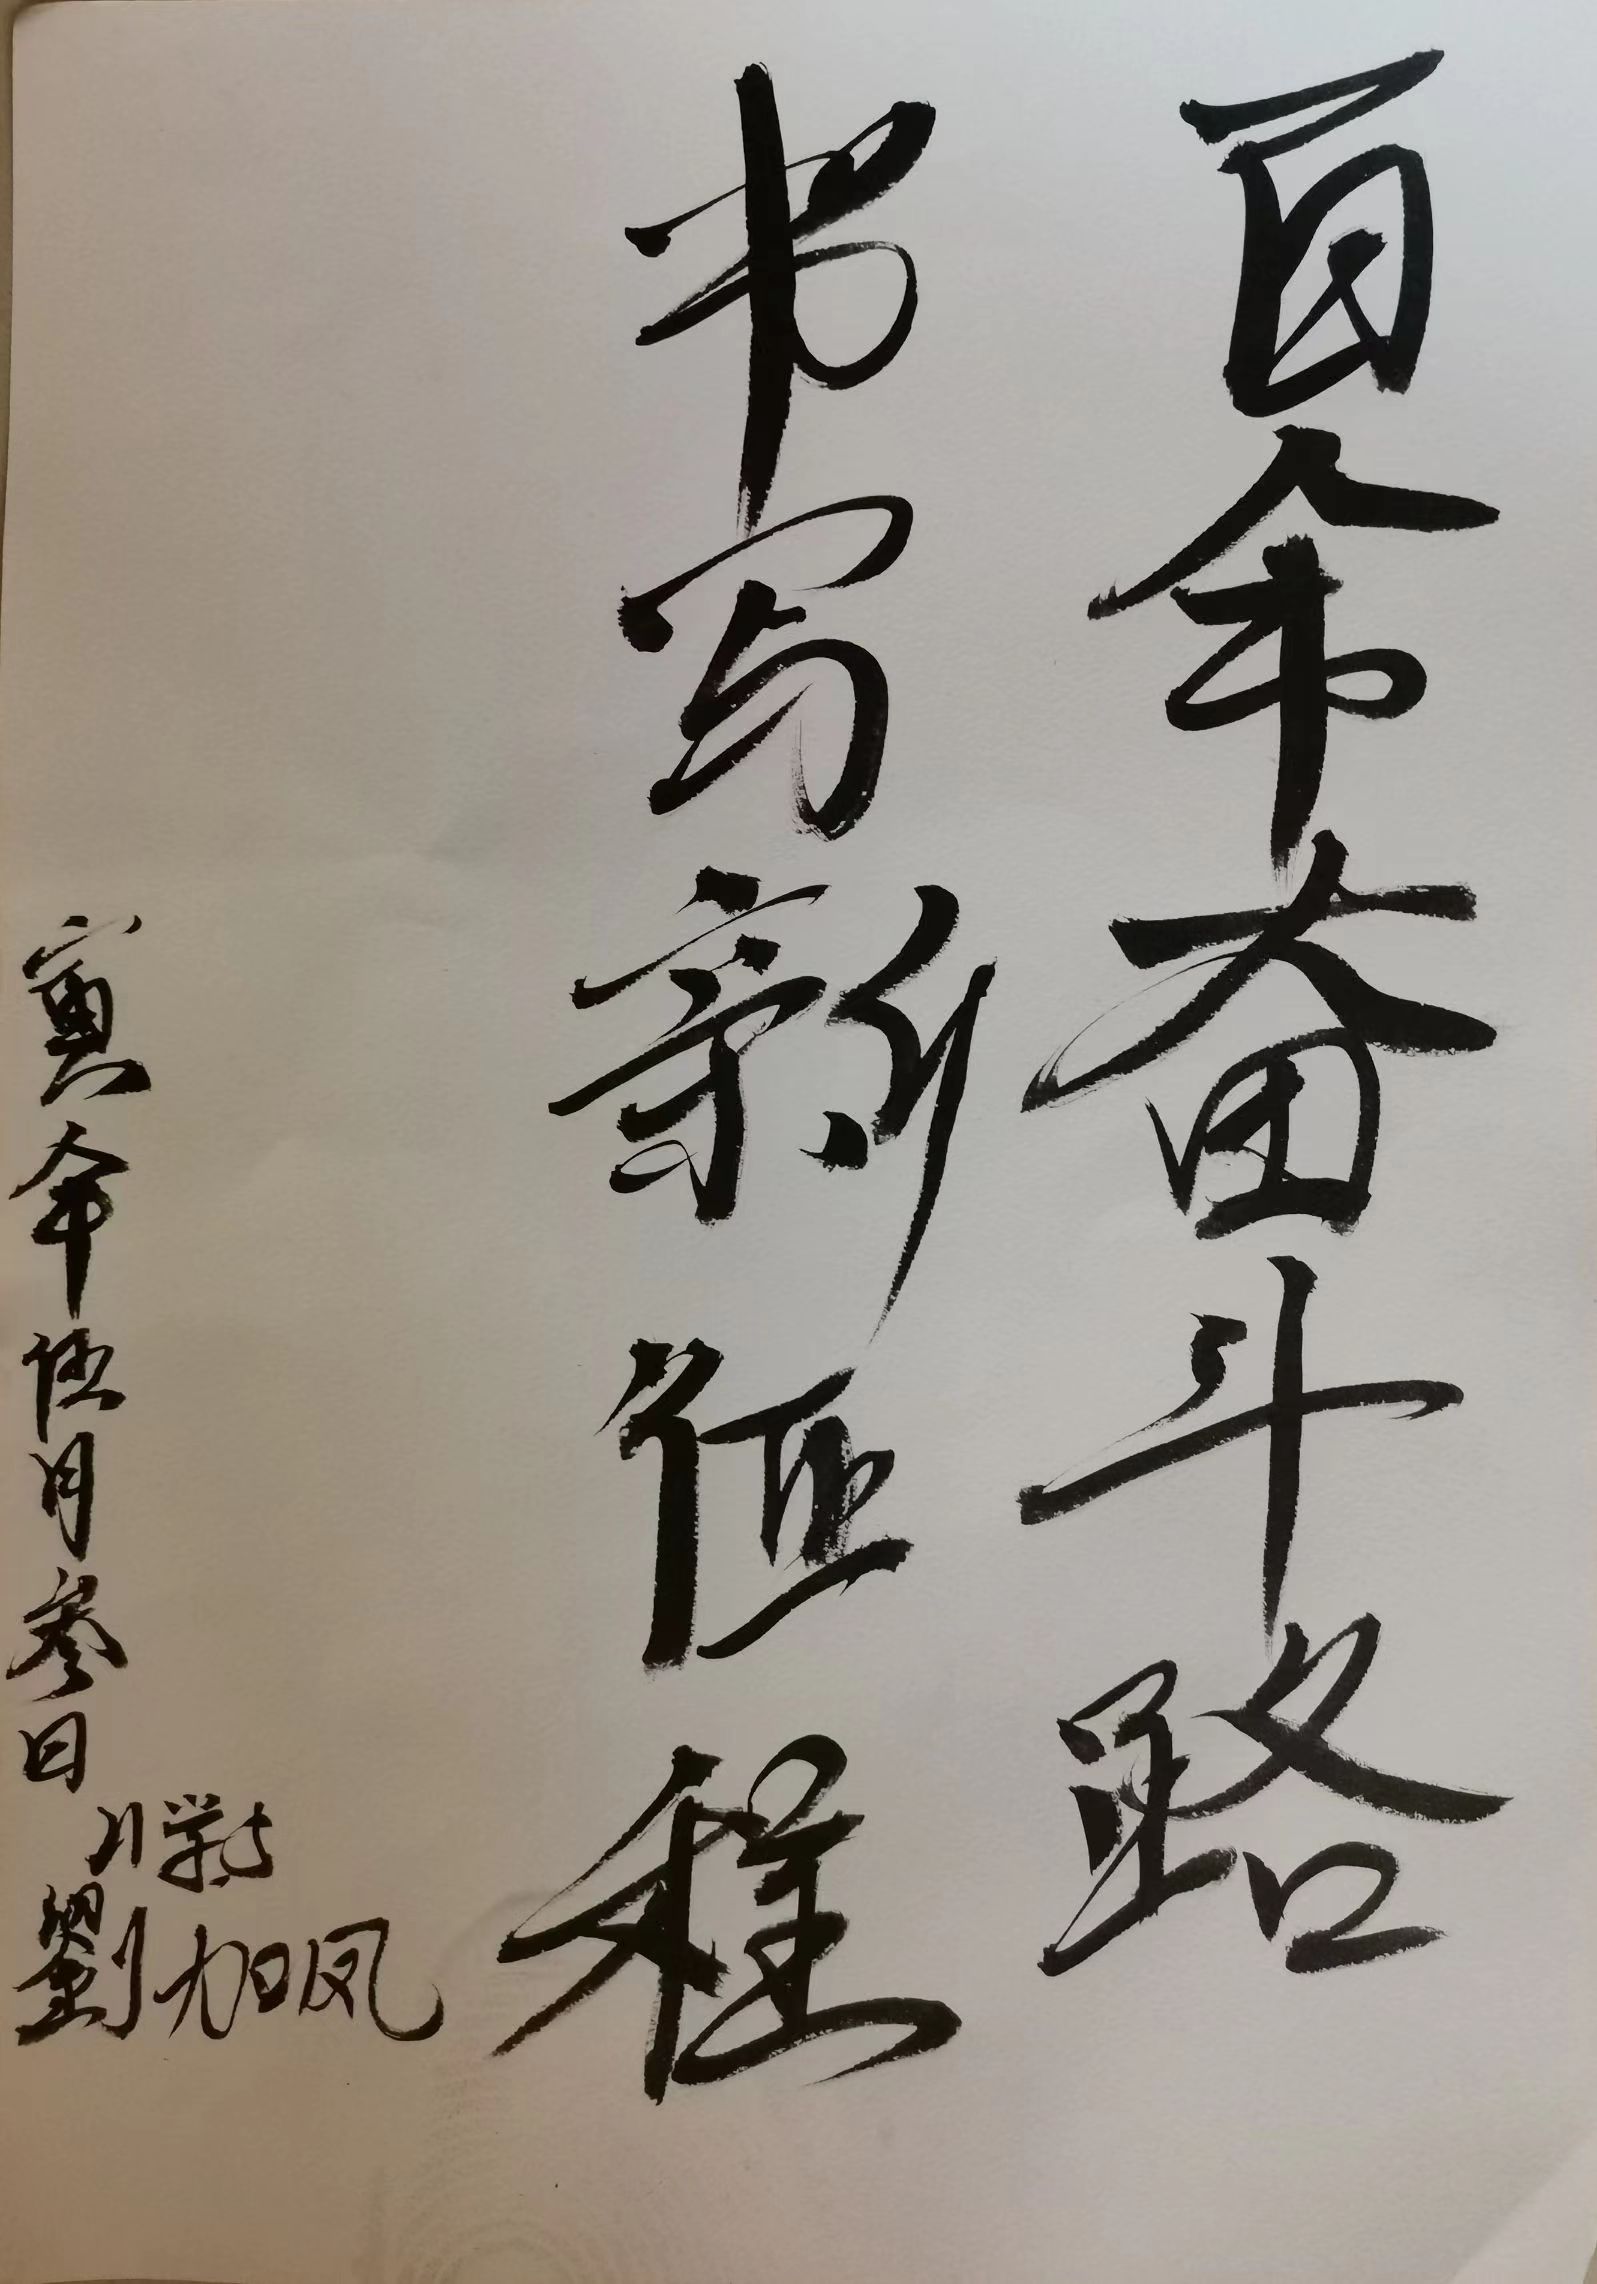 百年奋斗路
书写新征程
寅年伍月叁日
小学生
劉旭凤